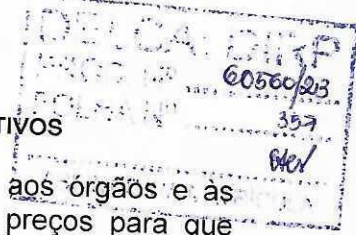 DELCA/DIRP
PROC. Nº 60560/23
FOLHA Nº 357
TIVOS
aos órgãos e às
preços para que